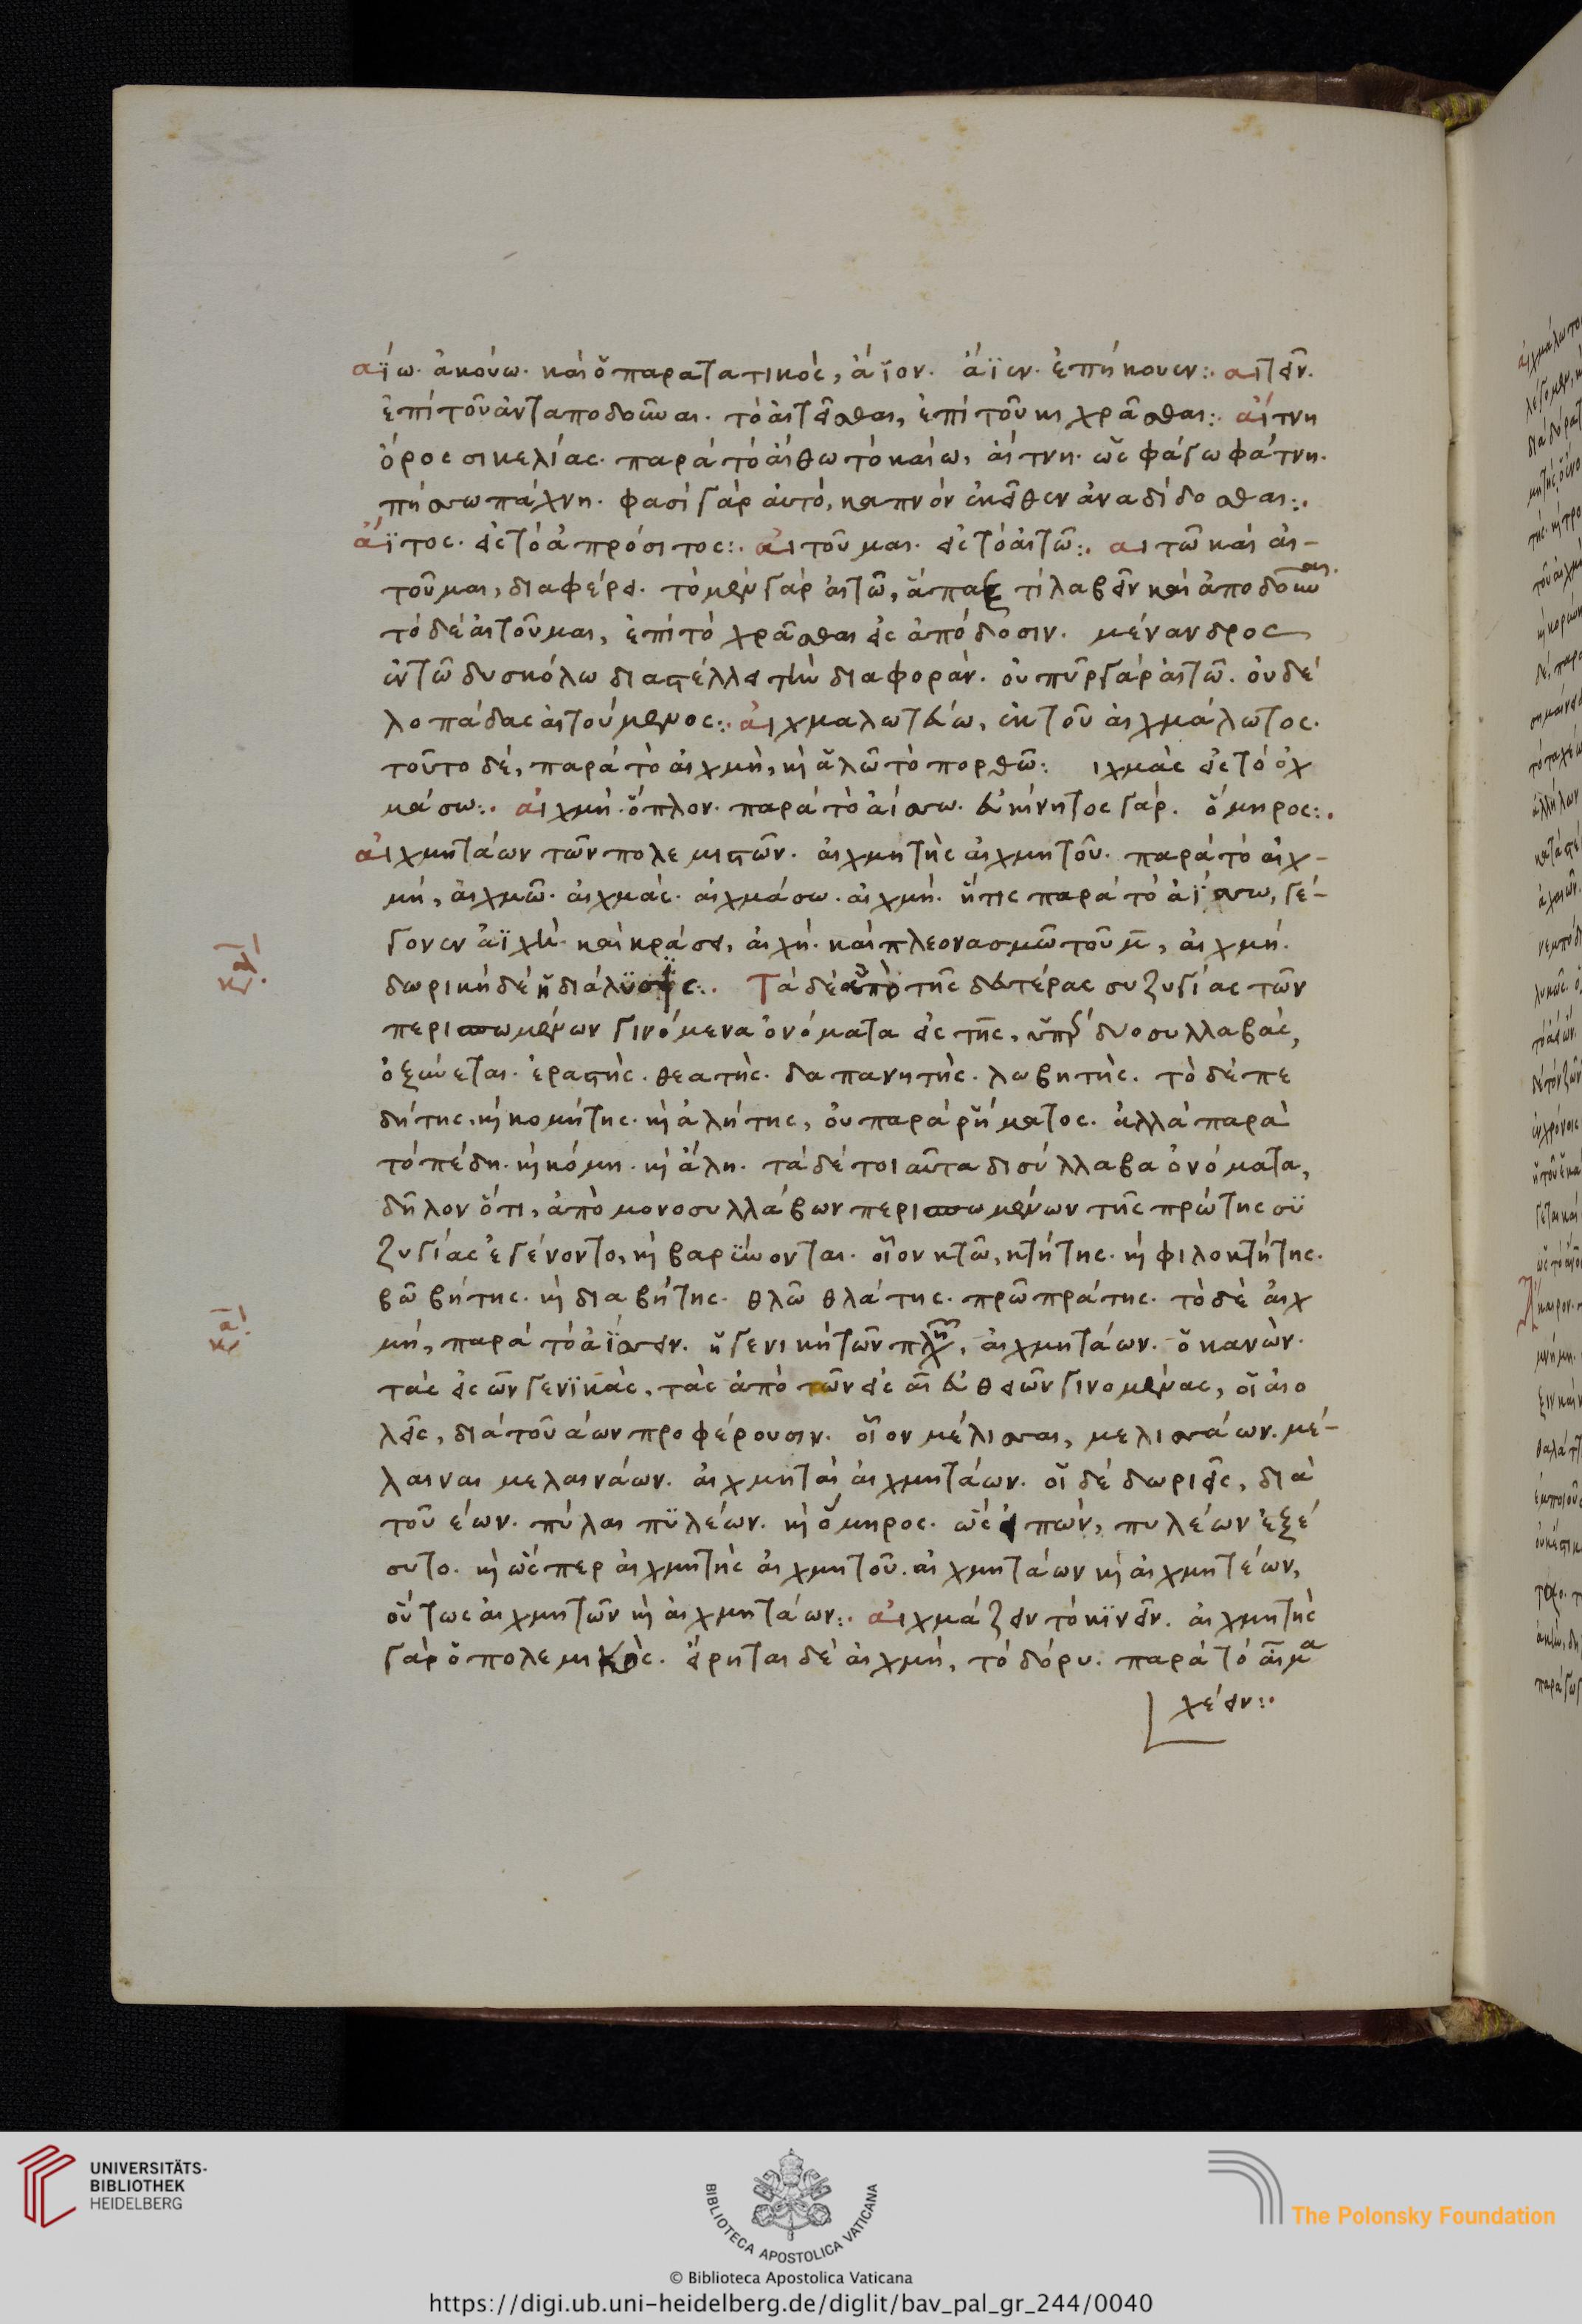 αΐω· ἀκούω· καὶ ὁ παρατατικὸς, ἄϊον· ἄϊεν· ἐπήκουεν:· αἰτεῖν·
ἐπὶ τοῦ ἀνταποδοῦναι· τὸ αἰτεῖσθαι, ἐπὶ τοῦ κιχρᾶσθαι:· αἴτνη
ὄρος σικελίας· παρὰ τὸ αἴθω τὸ καίω, αἴτνη· ὡς φάγω φάτνη·
πήσσω πάχνη· φασὶ γὰρ αὐτὸ, καπνὸν ἐκεῖθεν ἀναδίδοσθαι:·
ἄϊτος· εἰς τὸ ἀπρόσιτος:· αἰτοῦμαι· εἰς τὸ αἰτῶ:· αἰτῶ καὶ αἰ-
τοῦμαι, διαφέρει· τὸ μὲν γὰρ αἰτῶ, ἅπαξ τι λαβεῖν καὶ ἀποδοῦναι·
τὸ δὲ αἰτοῦμαι, ἐπὶ τὸ χρᾶσθαι εἰς ἀπόδοσιν· μένανδρος
ἐν τῶ δυσκόλω διαστέλλει τὴν διαφοράν· οὐ πῦρ γὰρ αἰτῶ· οὐδὲ
λοπάδας αἰτούμενος:· αἰχμαλωτεύω, ἐκ τοῦ αἰχμάλωτος·
τοῦτο δὲ, παρὰ τὸ αἰχμὴ, κὶ ἁλῶ τὸ πορθῶ: ιχμὰς εἰς τὸ ὀχ
μάσω:· αἰχμὴ· ὅπλον· παρὰ τὸ ἀΐσσω· εὐκίνητος γάρ· ὅμηρος:·
αἰχμητάων τῶν πολεμιστῶν· αἰχμητὴς αἰχμητοῦ· παρὰ τὸ αἰχ-
μή, αἰχμῶ· αἰχμὰς· αἰχμάσω· αἰχμή· ἥτις παρὰ τὸ ἀΐσσω, γέ-
γονεν ἀϊχὴ· καὶ κράσει, αἰχή· καὶ πλεονασμῶ τοῦ μ̅, αἰχμή·
δωρικὴ δὲ ἡ διάλυσις:· Τὰ δὲ ἀπὸ τῆς δευτέρας συζυγίας τῶν
περισπωμένων γινόμενα ὀνόματα εἰς της, ὑπὲρ δύο συλλαβὰς,
ὀξύνεται· ἐραστὴς· θεατὴς· δαπανητὴς· λωβητὴς· τὸ δὲ πε
δήτης· κὶ κομήτης· κὶ ἀλήτης, οὐ παρὰ ῥήματος· ἀλλὰ παρὰ
τὸ πέδη· κὶ κόμη· κὶ ἄλη· τὰ δὲ τοιαῦτα δισύλλαβα ὀνόματα,
δῆλον ὅτι, ἀπὸ μονοσυλλάβων περισπωμένων τῆς πρώτης συ
ζυγίας ἐγένοντο, κὶ βαρύνονται· οἷον κτῶ, κτήτης· κὶ φιλοκτήτης·
βῶ βήτης· κὶ διαβήτης· θλῶ θλάτης· πρῶ πράτης· τὸ δὲ αἰχ
μή, παρὰ τὸ ἀΐσσειν· ἡ γενικὴ τῶν πληθ, αἰχμητάων· ὁ κανών·
τὰς εἰς ων γενικὰς, τὰς ἀπὸ τῶν εἰς αι εὐθειῶν γινομένας, οἱ αἰο
λεῖς, διὰ τοῦ άων προφέρουσιν· οἷον μέλισσαι, μελισσάων· μέ-
λαιναι μελαινάων· αἰχμηταὶ αἰχμητάων· οἱ δὲ δωριεῖς, διὰ
τοῦ έων· πύλαι πυλέων· κὶ ὅμηρος· ὡς εἰπών, πυλέων ἐξέ
συτο· κὶ ὥσπερ αἰχμητὴς αἰχμητοῦ· αἰχμητάων κὶ αἰχμητέων,
οὕτως αἰχμητῶν κὶ αἰχμητάων:· αἰχμάζειν τὸ κινεῖν· αἰχμητὴς
γὰρ ὁ πολεμικὸς· εἴρηται δὲ αἰχμή, τὸ δόρυ· παρὰ τὸ αἷμα
χέειν:·
UNIVERSITÄTS-
BIBLIOTHEK
HEIDELBERG
BIBLIOTECA APOSTOLICA VATICANA
The Polonsky Foundation
© Biblioteca Apostolica Vaticana
https://digi.ub.uni-heidelberg.de/diglit/bav_pal_gr_244/0040